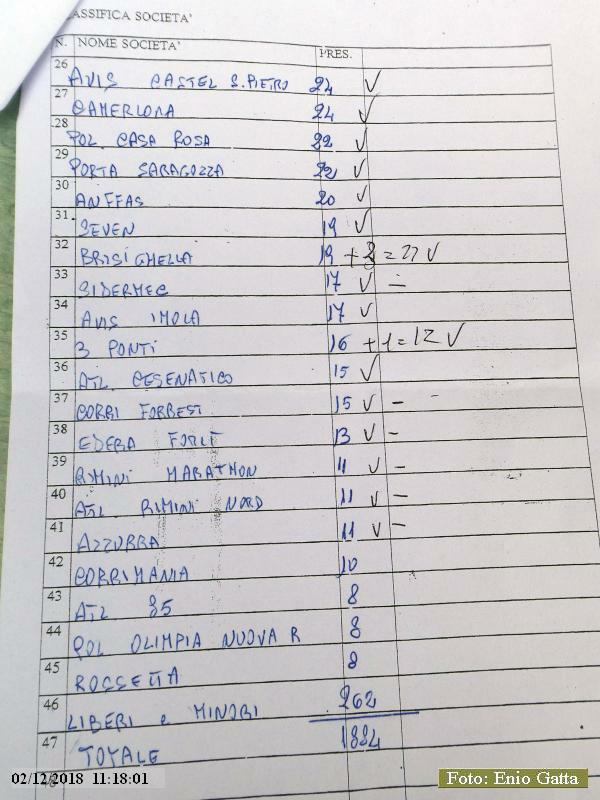 CLASSIFICA SOCIETA'
N. NOME SOCIETA' PRES.
26 AVIS CASTEL S.PIETRO 24 ✓
27 CAMERLONA 24 ✓
28 POL. CASA ROSA 22 ✓
29 PORTA SARAGOZZA 22 ✓
30 ANFFAS 20 ✓
31 SEVEN 19 ✓
32 BRISIGHELLA 19 + = ✓
33 SIDERMEC 17 ✓ –
34 AVIS IMOLA 17 ✓
35 3 PONTI 16 + 1 = ✓
36 ATL. CESENATICO 15 ✓
37 CORRI FORREST 15 ✓ –
38 EDERA FORLÌ 13 ✓ –
39 RIMINI MARATHON 11 ✓ –
40 ATL. RIMINI NORD 11 ✓ –
41 AZZURRA 11 ✓ –
42 CORRIMANIA 10
43 ATL. 85 8
44 POL OLIMPIA NUOVA R 8
45 ROSSETTA 8
46 LIBERI e MINORI 262
47 TOTALE 1884
02/12/2018 11:18:01
Foto: Enio Gatta